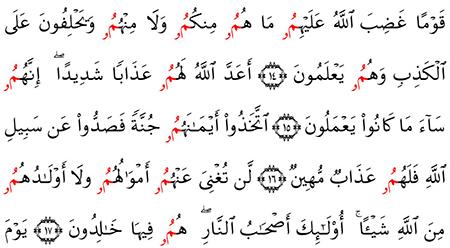 قَوْمًا غَضِبَ ٱللَّهُ عَلَيْهِمُۥ مَا هُمُۥ مِنكُمُۥ وَلَا مِنْهُمُۥ وَيَحْلِفُونَ عَلَى
ٱلْكَذِبِ وَهُمُۥ يَعْلَمُونَ ﴿١٤﴾ أَعَدَّ ٱللَّهُ لَهُمُۥ عَذَابًا شَدِيدًا ۖ إِنَّهُمُۥ
سَآءَ مَا كَانُوا۟ يَعْمَلُونَ ﴿١٥﴾ ٱتَّخَذُوٓا۟ أَيْمَـٰنَهُمُۥ جُنَّةً فَصَدُّوا۟ عَن سَبِيلِ
ٱللَّهِ فَلَهُمُۥ عَذَابٌ مُّهِينٌ ﴿١٦﴾ لَّن تُغْنِىَ عَنْهُمُۥ أَمْوَٰلُهُمُۥ وَلَا أَوْلَـٰدُهُمُۥ
مِنَ ٱللَّهِ شَيْـًٔا ۚ أُو۟لَـٰٓئِكَ أَصْحَـٰبُ ٱلنَّارِ ۖ هُمُۥ فِيهَا خَـٰلِدُونَ ﴿١٧﴾ يَوْمَ